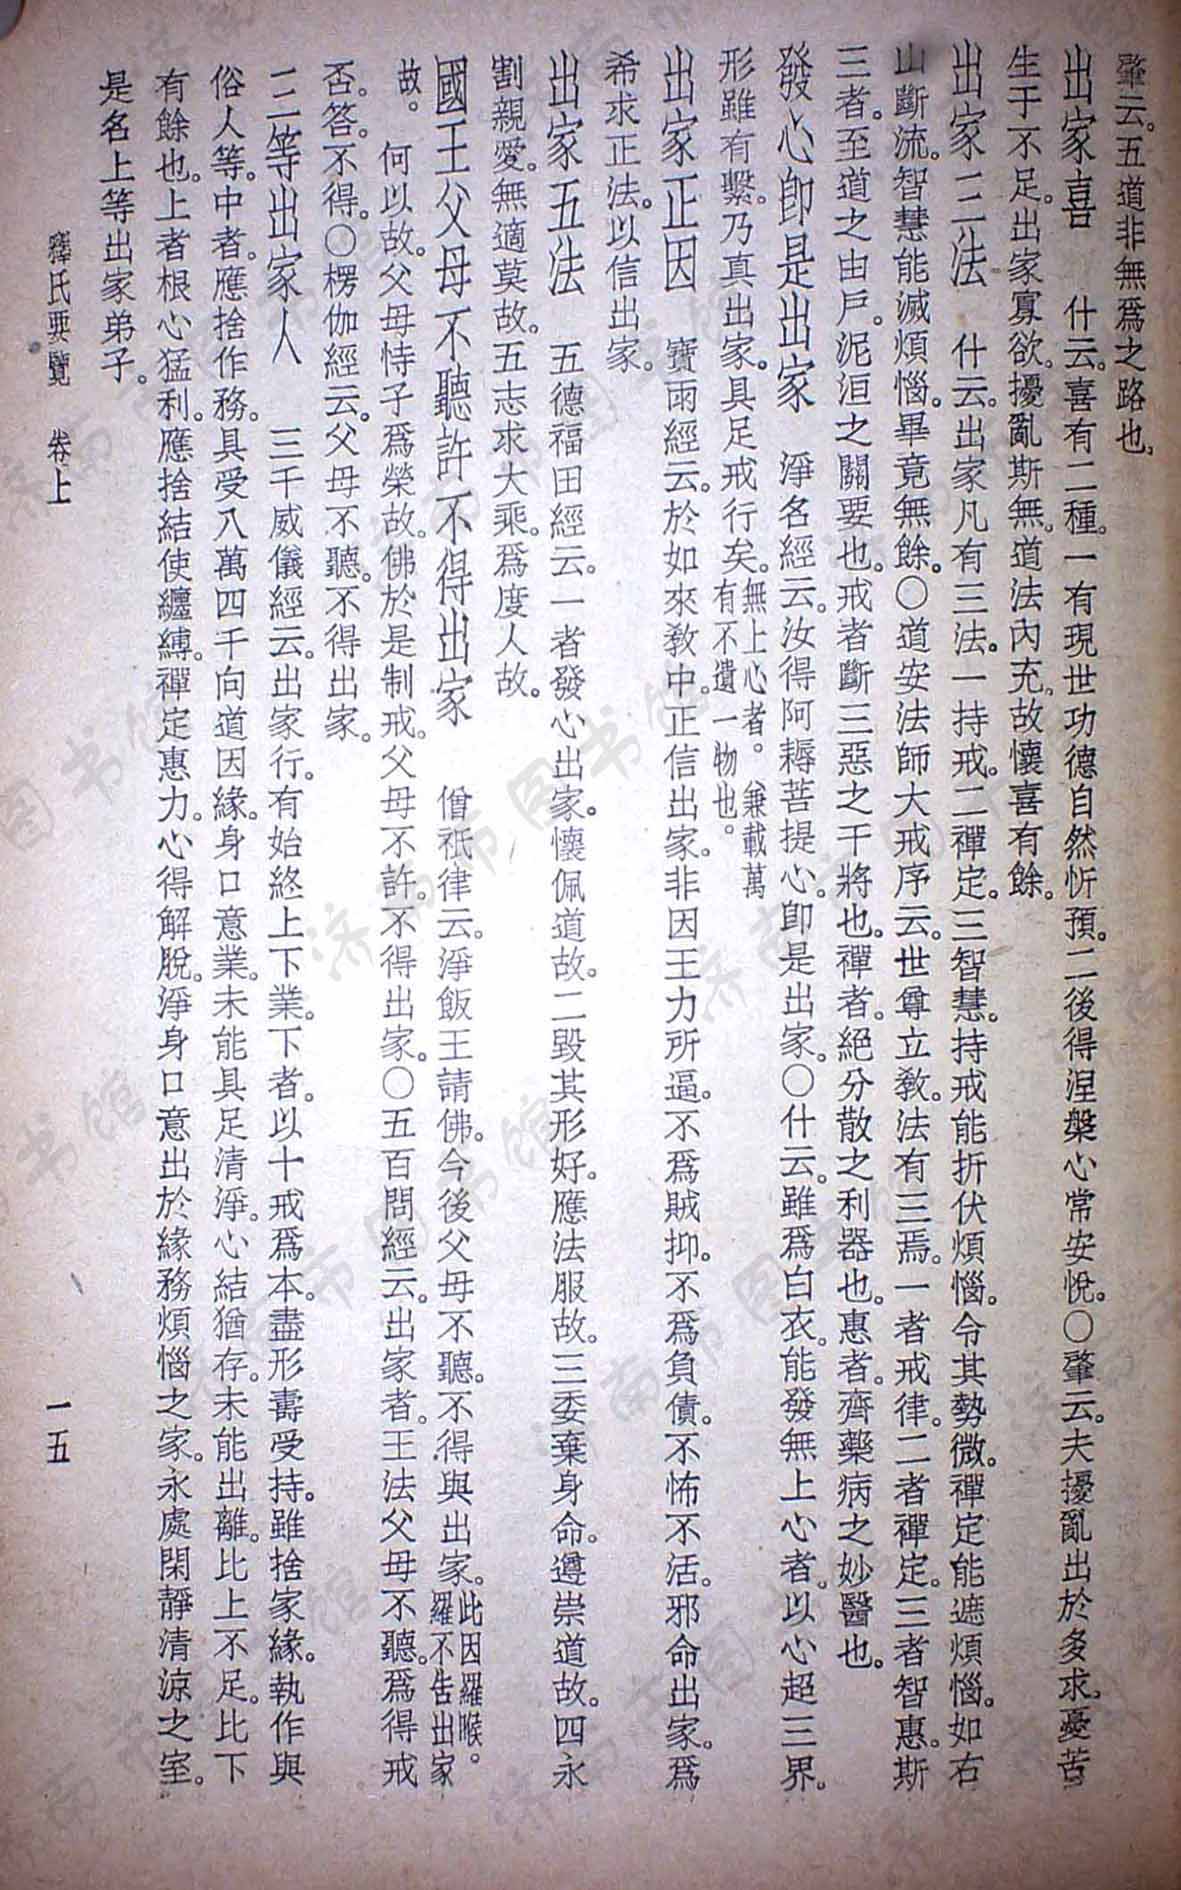 肇云。五道非無爲之路也。
出家喜　什云。喜有二種。一有現世功德自然忻預。二後得涅槃心常安悅。〇肇云。夫擾亂出於多求。憂苦
生于不足。出家寡欲。擾亂斯無。道法內充。故懷喜有餘。
出家三法　什云。出家凡有三法。一持戒。二禪定。三智慧。持戒能折伏煩惱。令其勢微。禪定能遮煩惱。如右
山斷流。智慧能滅煩惱。畢竟無餘。〇道安法師大戒序云。世尊立教。法有三焉。一者戒律。二者禪定。三者智惠。斯
三者。至道之由戶。泥洹之關要也。戒者斷三惡之干將也。禪者。絕分散之利器也。惠者。齊藥病之妙醫也。
發心卽是出家　淨名經云。汝得阿耨菩提心。卽是出家。〇什云。雖爲白衣。能發無上心者。以心超三界。
形雖有繫。乃真出家。具足戒行矣。無上心者。兼載萬有。不遺一物也。
出家正因　寶雨經云。於如來教中。正信出家。非因王力所逼。不爲賊抑。不爲負債。不怖不活。邪命出家。爲
希求正法。以信出家。
出家五法　五德福田經云。一者發心出家。懷佩道故。二毀其形好。應法服故。三委棄身命。遵崇道故。四永
割親愛。無適莫故。五志求大乘。爲度人故。
國王父母不聽許不得出家　僧祇律云。淨飯王請佛。今後父母不聽。不得與出家。此因羅睺。羅不告出家
故。　何以故。父母恃子爲榮故。佛於是制戒。父母不許。不得出家。〇五百問經云。出家者。王法父母不聽。爲得戒
否。答。不得。〇楞伽經云。父母不聽。不得出家。
三等出家人　三千威儀經云。出家行。有始終上下業。下者。以十戒爲本。盡形壽受持。雖捨家緣。執作與
俗人等。中者。應捨作務。具受八萬四千向道因緣。身口意業。未能具足清淨。心結猶存。未能出離。比上不足。比下
有餘也。上者根心猛利。應捨結使纏縛。禪定惠力。心得解脫。淨身口意出於緣務煩惱之家。永處閑靜清涼之室。
是名上等出家弟子。
釋氏要覽　卷上　一五